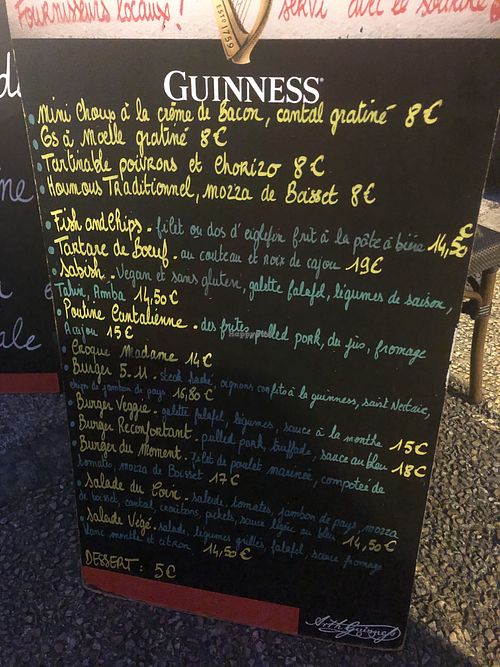 Fournisseurs locaux! servi avec le sourire
EST 1759
GUINNESS
Mini Choux à la crème de Bacon, cantal gratiné 8€
Os à Moelle gratiné 8€
Tartinable poivrons et Chorizo 8€
Houmous Traditionnel, mozza de Boisset 8€
Fish and Chips - filet ou dos d'eiglefin frit à la pâte à bière 14,50€
Tartare de Boeuf - au couteau et noix de cajou 19€
Sabish - Vegan et sans gluten, galette falafel, légumes de saison,
Tahiné, Amba 14,50€
Poutine Cantalienne - des frites, pulled pork, du jus, fromage
A cajou 15€
Croque Madame 14€
Burger 5.11 - steak haché, oignons confits à la guinness, saint Nectaire,
chips de jambon de pays 16,80€
Burger Veggie - galette falafel, légumes, sauce à la menthe 15€
Burger Réconfortant - pulled pork, truffade, sauce au bleu 18€
Burger du Moment - filet de poulet mariné, compotée de
tomates, mozza de Boisset 17€
Salade du Coin - salade, tomates, jambon de pays, mozza
de boisset, cantal, croûtons, pickels, sauce légère au bleu 14,50€
Salade Végé - salade, légumes grillés, falafel, sauce fromage
blanc menthe et citron 14,50€
DESSERT: 5€